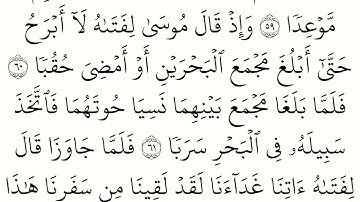 مَّوْعِدًا ٥٩ وَإِذْ قَالَ مُوسَىٰ لِفَتَىٰهُ لَآ أَبْرَحُ
حَتَّىٰٓ أَبْلُغَ مَجْمَعَ ٱلْبَحْرَيْنِ أَوْ أَمْضِىَ حُقُبًا ٦٠
فَلَمَّا بَلَغَا مَجْمَعَ بَيْنِهِمَا نَسِيَا حُوتَهُمَا فَٱتَّخَذَ
سَبِيلَهُۥ فِى ٱلْبَحْرِ سَرَبًا ٦١ فَلَمَّا جَاوَزَا قَالَ
لِفَتَىٰهُ ءَاتِنَا غَدَآءَنَا لَقَدْ لَقِينَا مِن سَفَرِنَا هَـٰذَا